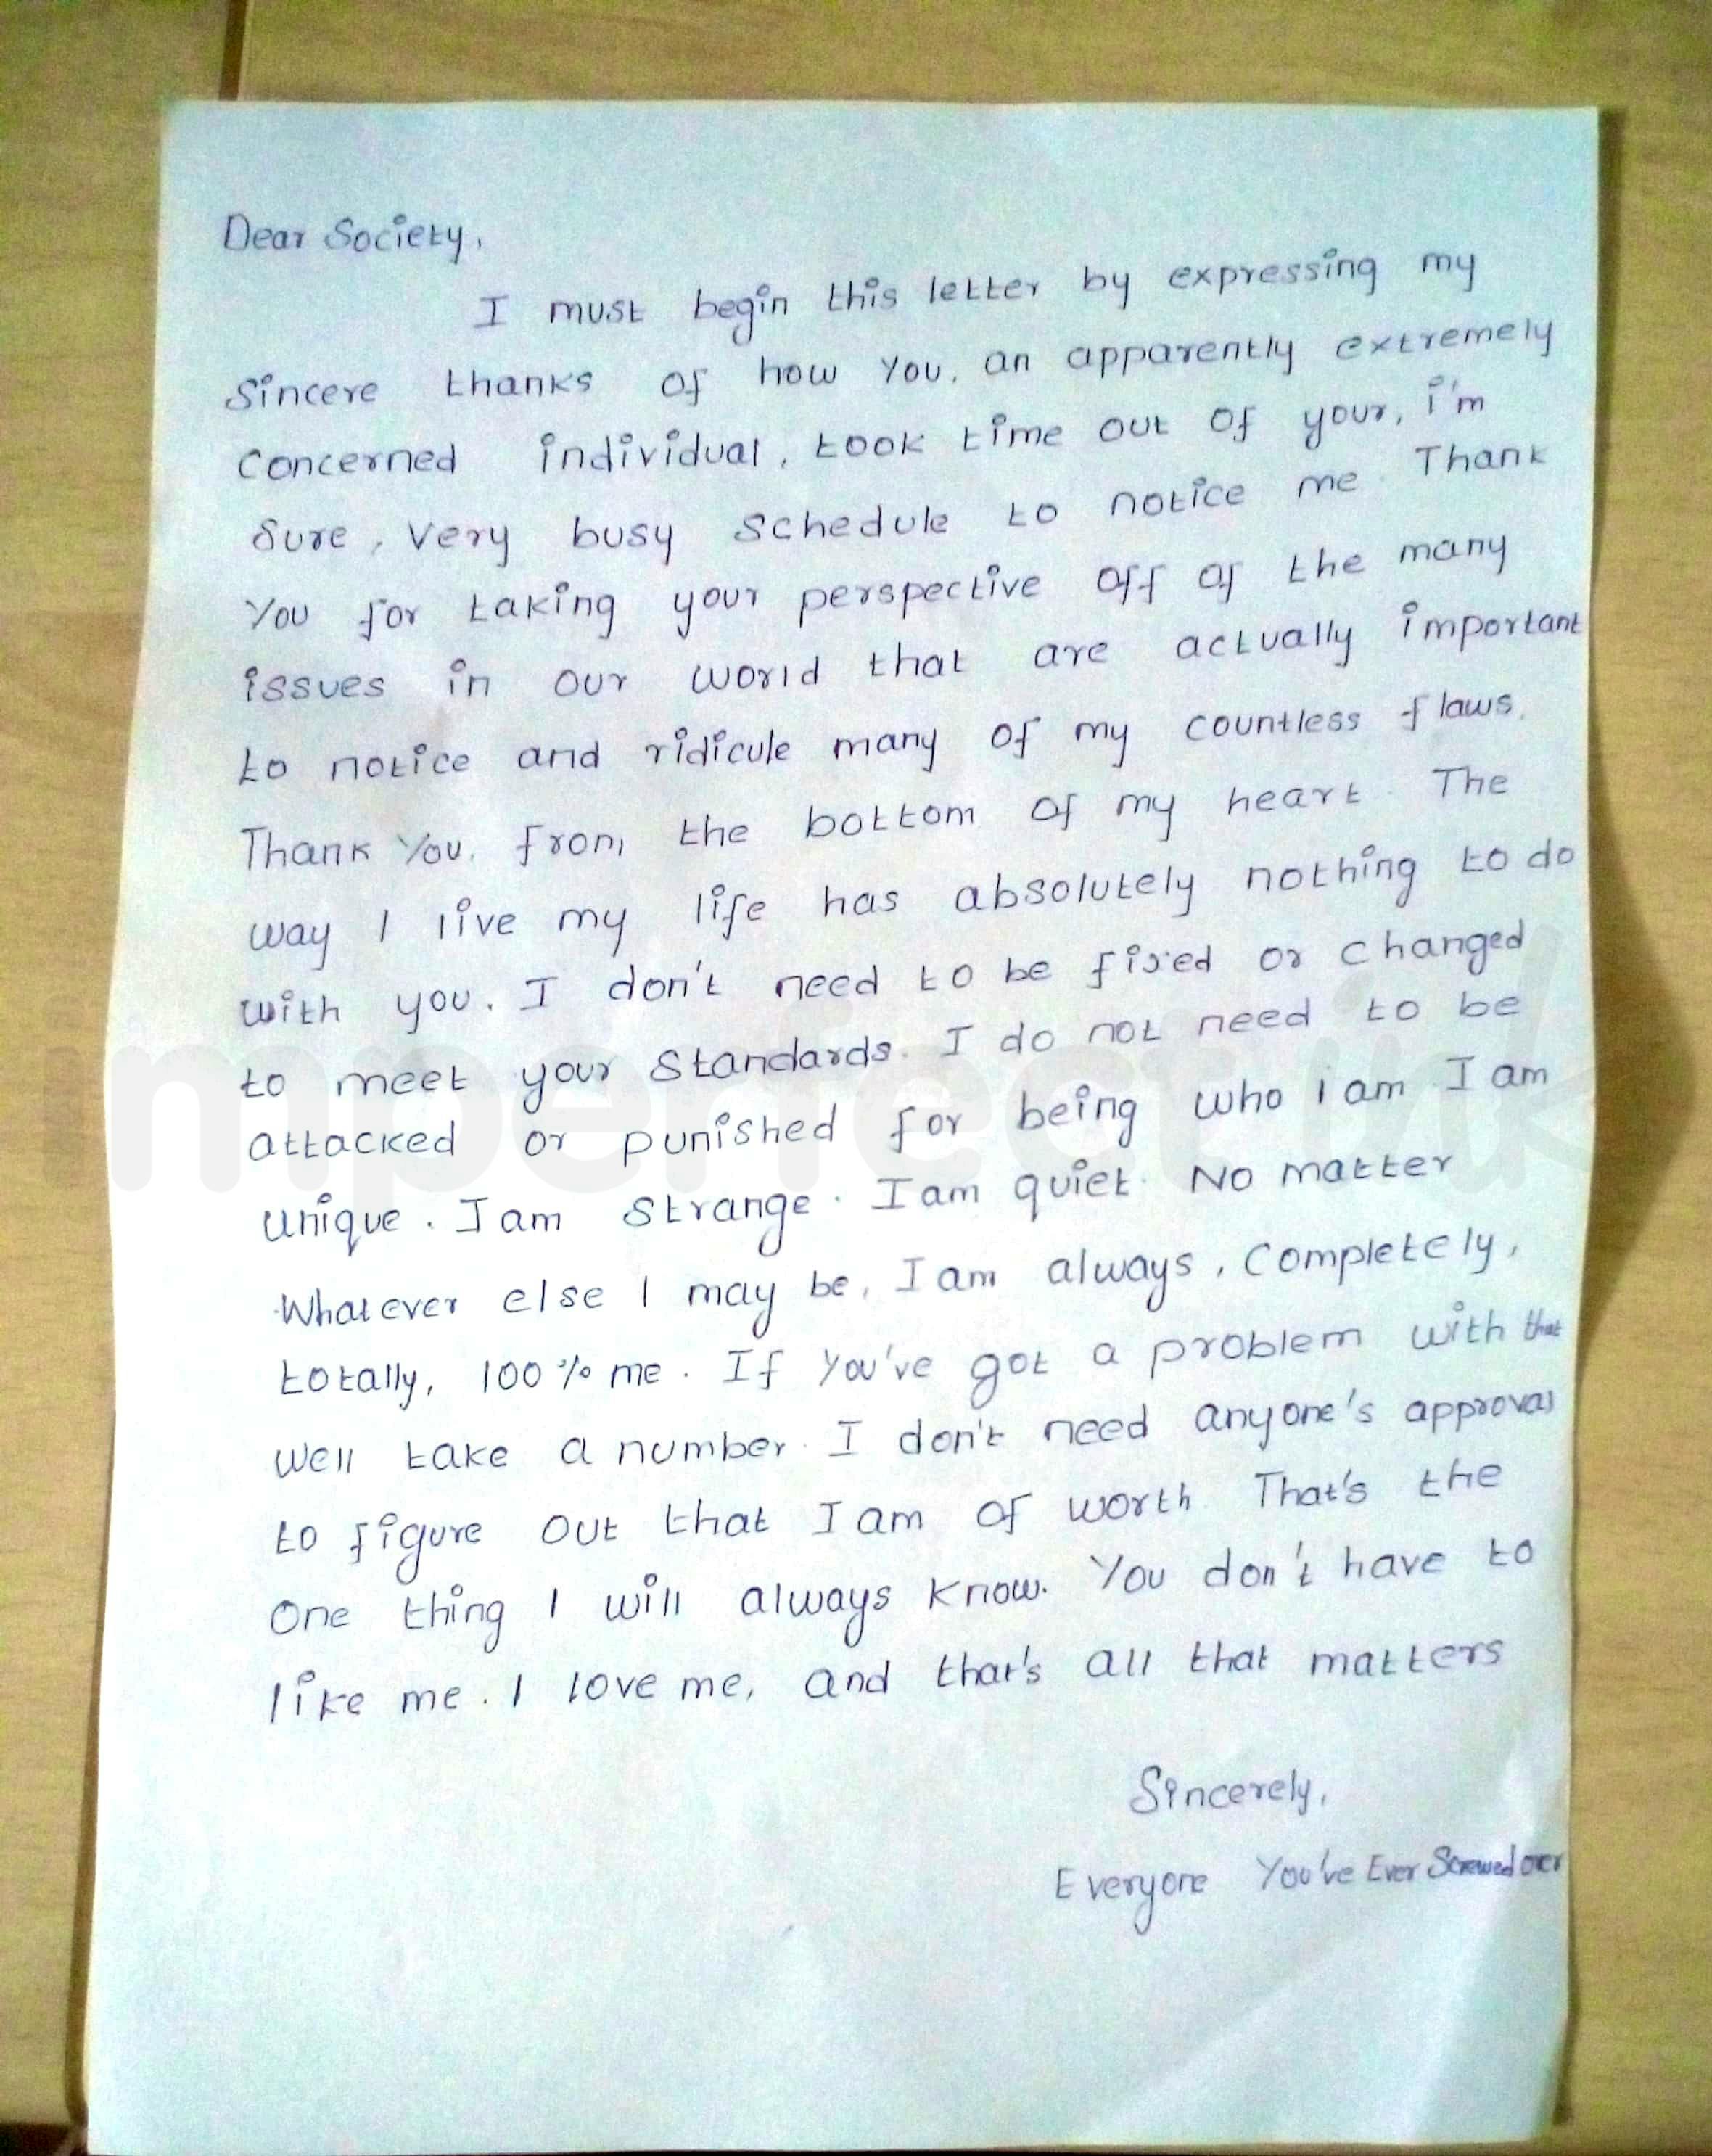 Dear Society,
I must begin this letter by expressing my
Sincere thanks of how you, an apparently extremely
concerned individual, took time out of your, i'm
sure, very busy schedule to notice me. Thank
You for taking your perspective off of the many
issues in our world that are actually important
to notice and ridicule many of my countless flaws.
Thank You, from the bottom of my heart. The
way I live my life has absolutely nothing to do
with you. I don't need to be fixed or changed
to meet your standards. I do not need to be
attacked or punished for being who i am I am
unique. I am strange. I am quiet. No matter
Whatever else I may be, I am always, completely,
totally, 100% me. If you've got a problem with that
well take a number. I don't need anyone's approval
to figure out that I am of worth. That's the
one thing I will always know. You don't have to
like me. I love me, and that's all that matters
Sincerely,
Everyone You've Ever Screwed over
imperfect ink